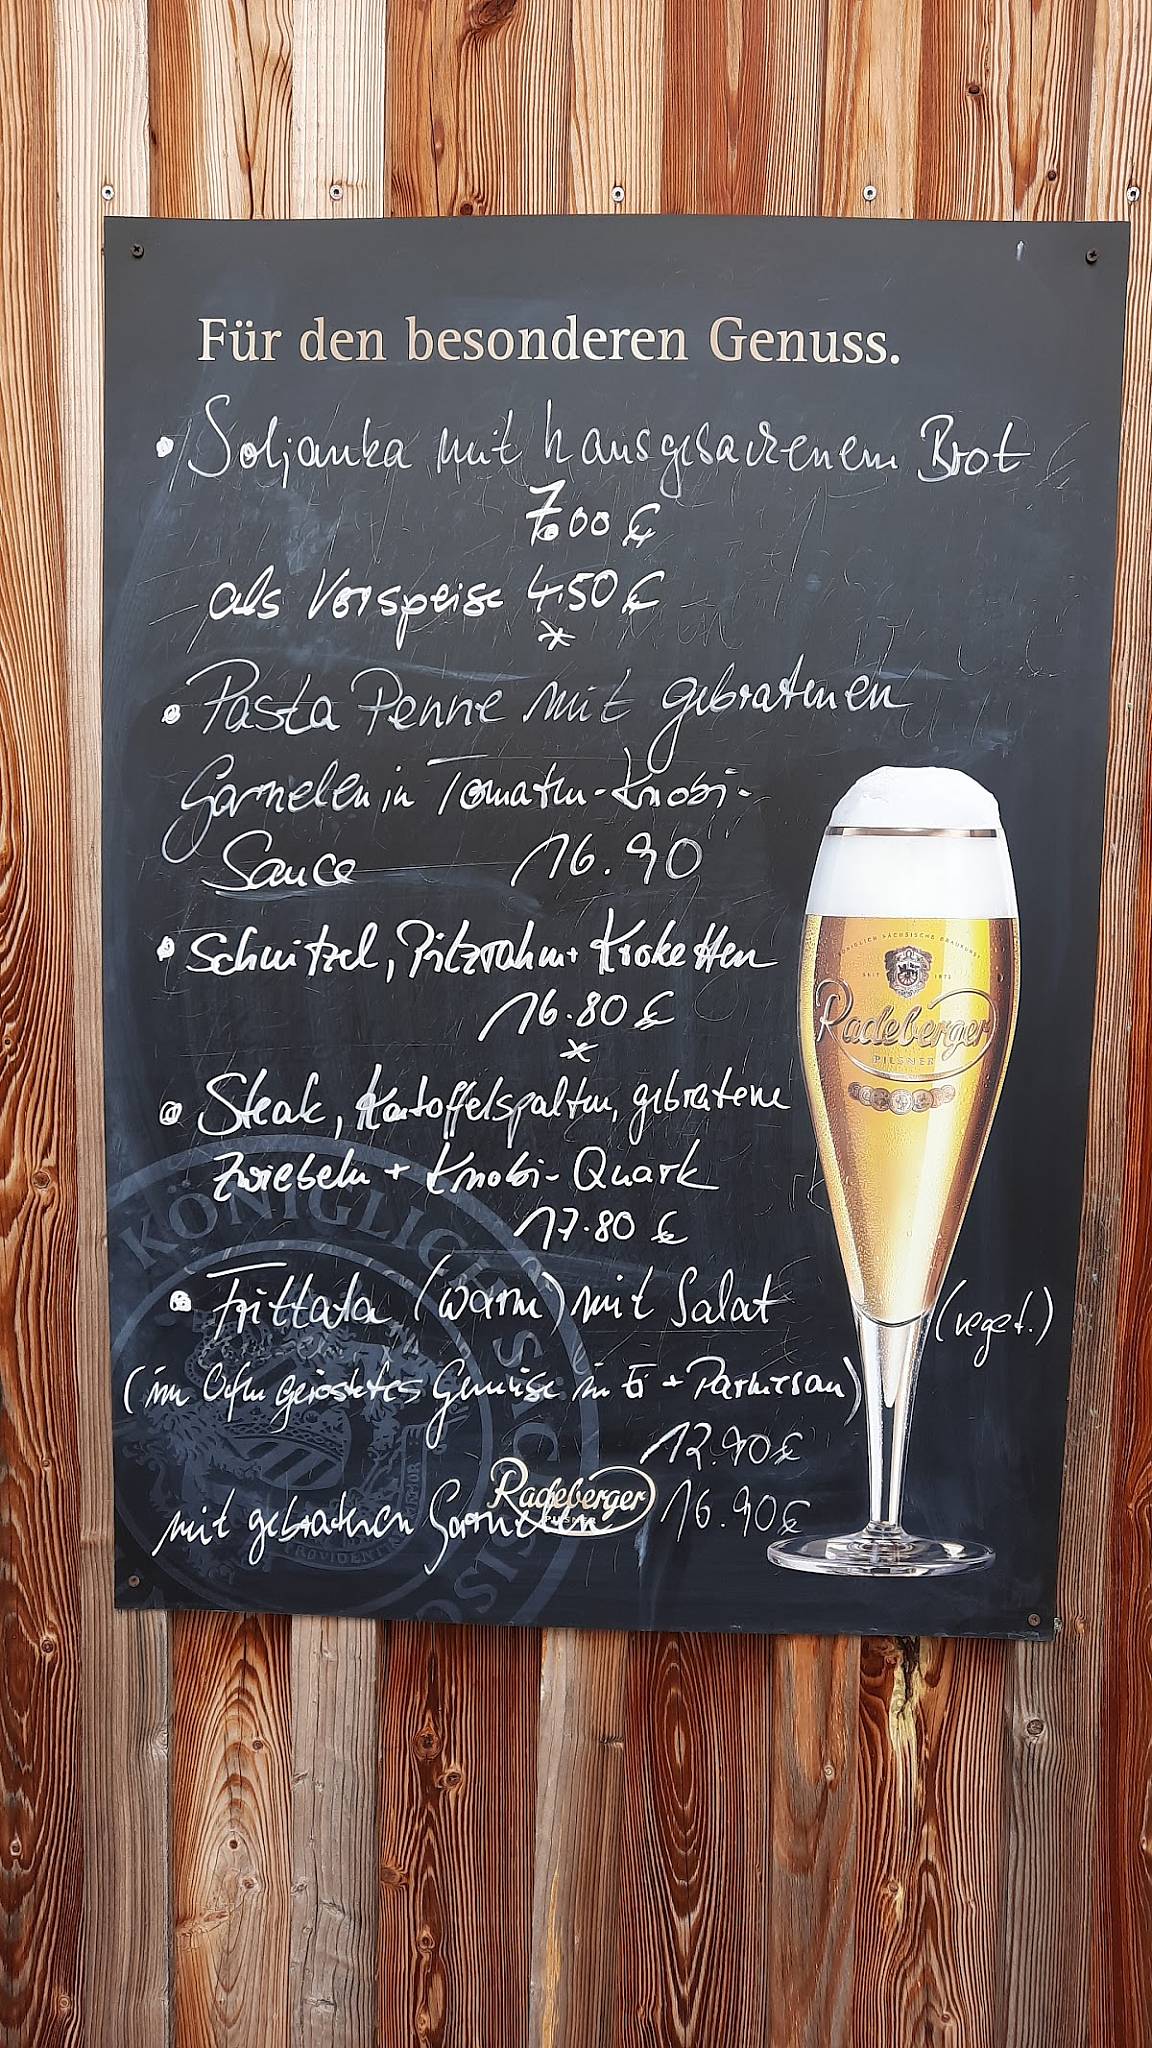 Für den besonderen Genuss.
• Soljanka mit hausgebackenem Brot
7.00 €
als Vorspeise 4.50 €
*
• Pasta Penne mit gebratenen
Garnelen in Tomaten-Knobi-
Sauce 16.90
• Schnitzel, Pilzrahm + Kroketten
16.80 €
*
• Steak, Kartoffelspalten, gebratene
Zwiebeln + Knobi-Quark
17.80 €
• Frittata (warm) mit Salat (veget.)
(im Ofen geröstetes Gemüse in Ei + Parmesan)
12.90 €
mit gebratenen Garnelen 16.90 €
KÖNIGLICH SÄCHSISCHE BRAUKUNST
SEIT 1872
Radeberger
PILSNER
KÖNIGLICH SÄC
Radeberger
PILSNER
PROVIDENTIAE MEMOR